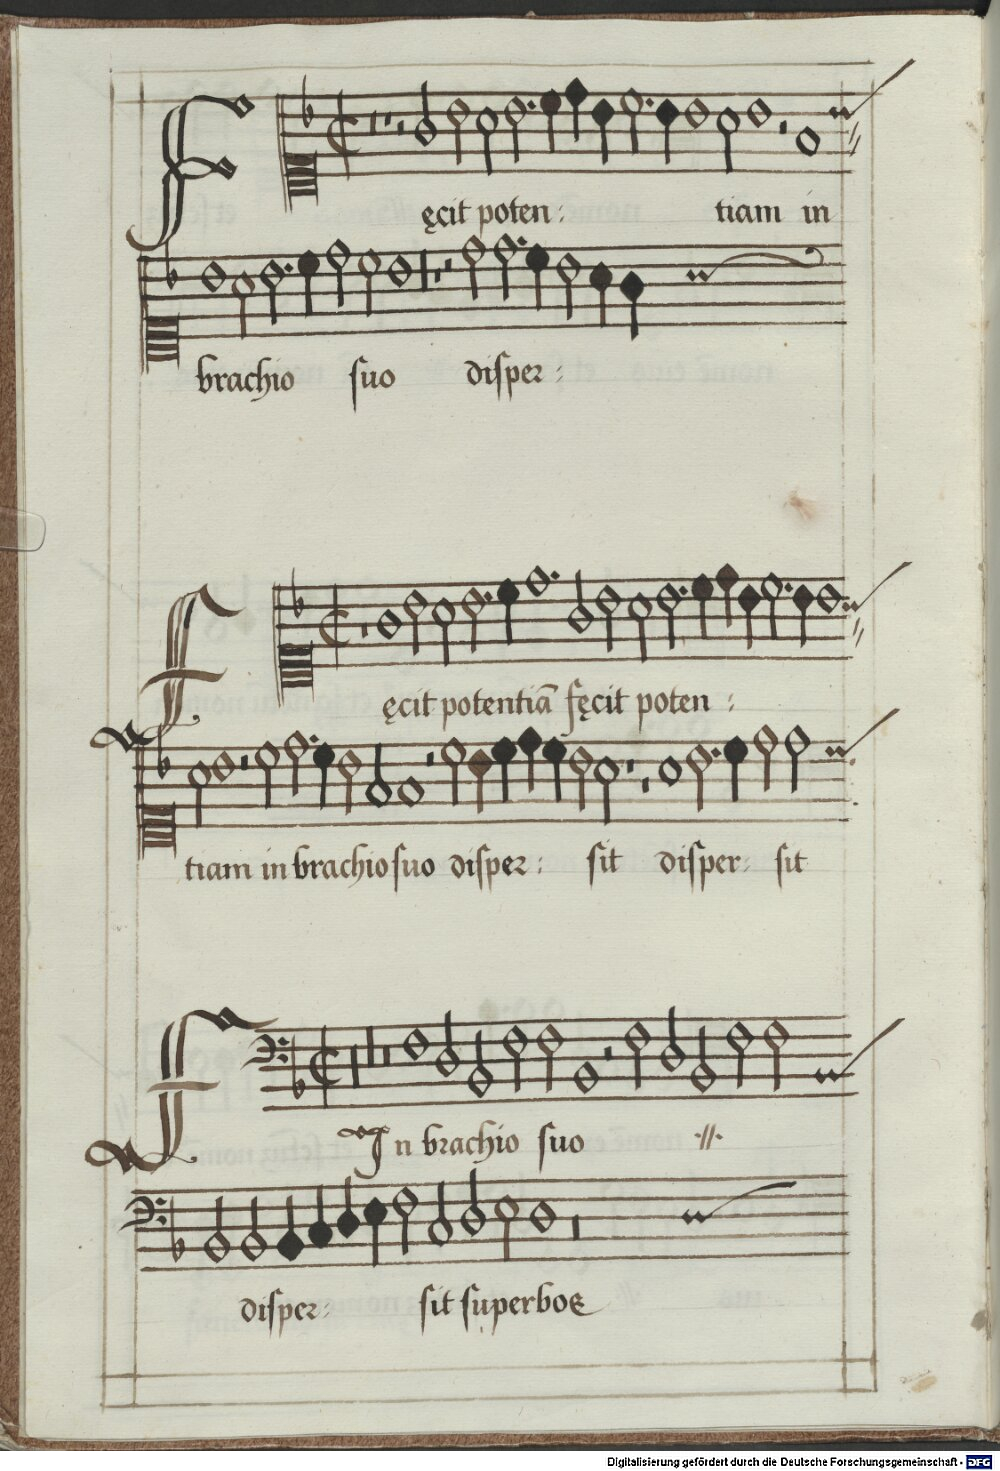 Fęcit poten: tiam in
brachio suo disper:
Fęcit potentiā fęcit poten:
tiam in brachio suo disper: sit disper: sit
F In brachio suo ·//·
disper: sit superbos
Digitalisierung gefördert durch die Deutsche Forschungsgemeinschaft - DFG